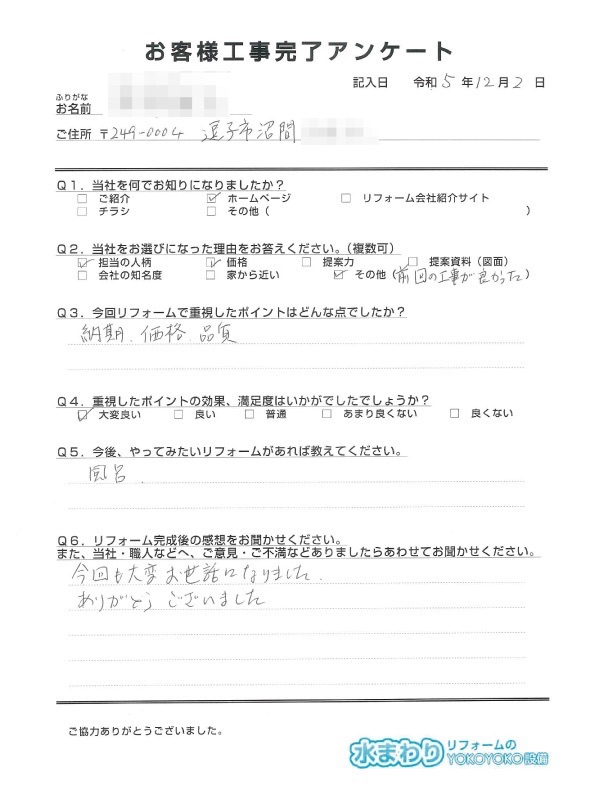 お客様工事完了アンケート
記入日 令和 5 年 12 月 2 日
ふりがな
お名前
ご住所 〒249-0004 逗子市沼間
Q1．当社を何でお知りになりましたか？
□ ご紹介 ☑ ホームページ □ リフォーム会社紹介サイト
□ チラシ □ その他（ ）
Q2．当社をお選びになった理由をお答えください。（複数可）
☑ 担当の人柄 ☑ 価格 □ 提案力 □ 提案資料（図面）
□ 会社の知名度 □ 家から近い ☑ その他（前回の工事が良かった）
Q3．今回リフォームで重視したポイントはどんな点でしたか？
納期、価格、品質
Q4．重視したポイントの効果、満足度はいかがでしたでしょうか？
☑ 大変良い □ 良い □ 普通 □ あまり良くない □ 良くない
Q5．今後、やってみたいリフォームがあれば教えてください。
風呂．
Q6．リフォーム完成後の感想をお聞かせください。
また、当社・職人などへ、ご意見・ご不満などありましたらあわせてお聞かせください。
今回も大変お世話になりました．
ありがとうございました
ご協力ありがとうございました。
水まわりリフォームのYOKOYOKO設備